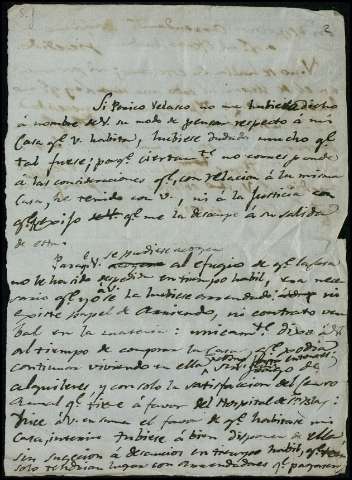 2
Si Perico Velasco no me hubiese dicho
á nombre de V. su modo de pensar respecto á mi
Casa qe. V. habita, hubiese dudado mucho qe.
tal fuese; porqe. ciertamte. no corresponde
á las consideraciones qe. con relacion á la misma
Casa, he tenido con V., ni á la Justicia con
qe. exijo qe. me la desocupe a su salida
de esta.
Paraqe. V. se pudiese acoger al efugio de qe. la Casa
no le ha sido pedida en tiempo habil, era nece-
sario qe. yo se la hubiese arrendado: ni
existe papel de Arriendo, ni contrato ver-
bal en la materia: unicamte. dixe á V.
al tiempo de comprar la Casa qe. podia
continuar viviendo en ella sin pago de
alquileres, y con solo la satisfaccion del Censo
anual qe. tiene á favor del Hospital de
hice á V. en suma el favor de qe. habitase mi
Casa, interin tubiese á bien disponer de ella,
sin sugecion á desaucios en tiempo habil, qe.
solo tendrian lugar con arrendadores qe. pagasen